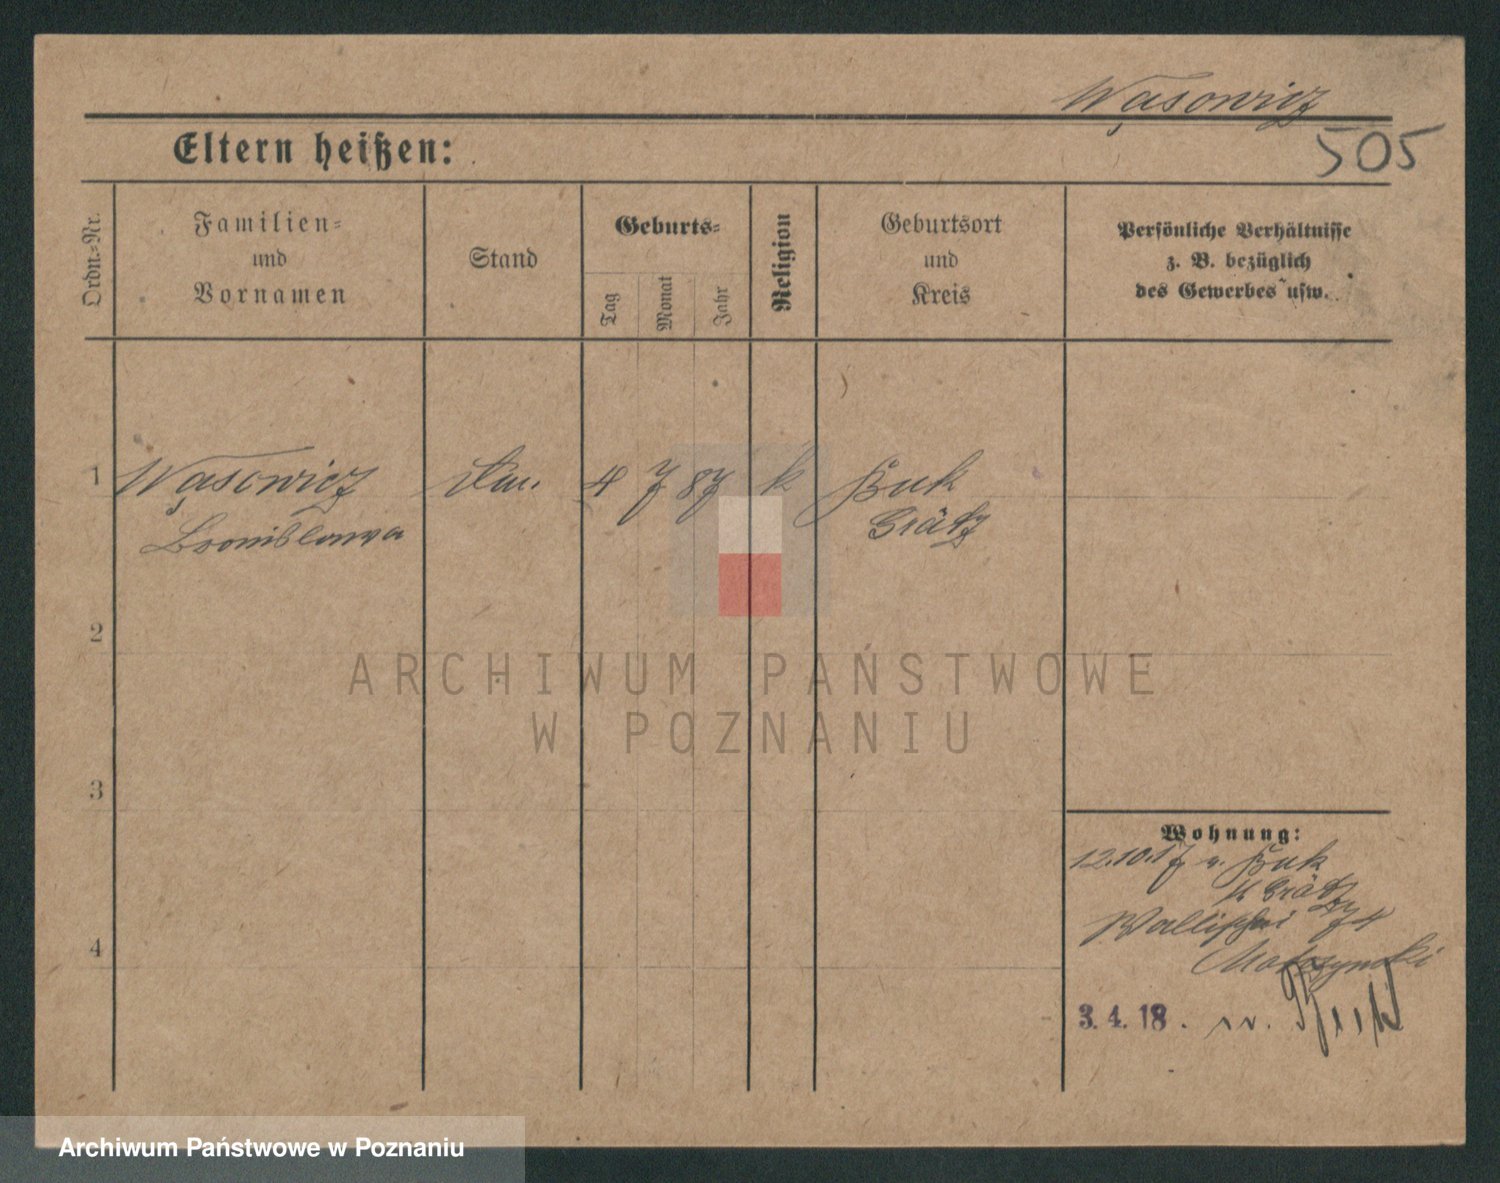 Wąsowicz
505
Eltern heißen:
Ordn.-Nr.
Familien-
und
Vornamen
Stand
Geburts-
Tag
Monat
Jahr
Religion
Geburtsort
und
Kreis
Persönliche Verhältnisse
z. B. bezüglich
des Gewerbes usw.
1
Wąsowicz
Bronislawa
4 7 87 k Buk
Grätz
2
3
4
Wohnung:
12.10.17 v. Buk
K Grätz
Wallischei 74
3. 4. 18. n. Buk
ARCHIWUM PAŃSTWOWE
W POZNANIU
Archiwum Państwowe w Poznaniu